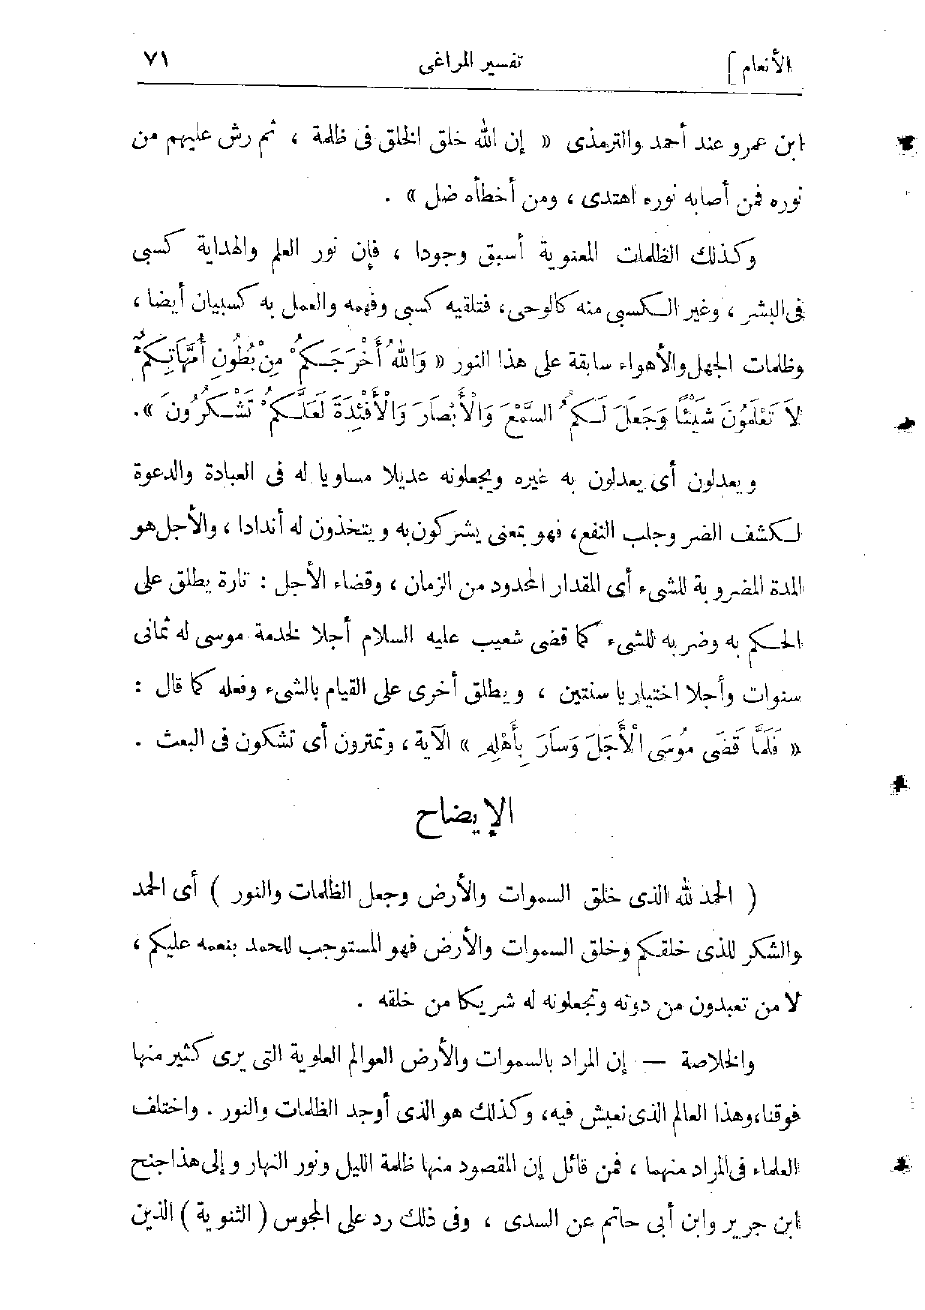 الأنعام ] تفسير المراغى ٧١
ابن عمرو عند أحمد والترمذى « إن الله خلق الخلق فى ظلمة ، ثم رش عليهم من
نوره فمن أصابه نوره اهتدى ، ومن أخطأه ضل » .
وكذلك الظلمات المعنوية أسبق وجودا ، فإن نور العلم والهداية كسبى
فى البشر ، وغير الكسبى منه كالوحى، فتلقيه كسبى وفهمه والعمل به كسبيان أيضا ،
وظلمات الجهل والأهواء سابقة على هذا النور « وَاللهُ أَخْرَجَكُمْ مِنْ بُطُونِ أُمَّهَاتِكُمْ
لاَ تَعْلَمُونَ شَيْئًا وَجَعَلَ لَكُمُ السَّمْعَ وَالْأَبْصَارَ وَالْأَفْئِدَةَ لَعَلَّكُمْ تَشْكُرُونَ ».
ويعدلون أى يعدلون به غيره ويجعلونه عديلا مساويا له فى العبادة والدعوة
لكشف الضر وجلب النفع، فهو بمعنى يشركون به ويتخذون له أندادا ، والأجل هو
المدة المضروبة للشىء أى المقدار المحدود من الزمان ، وقضاء الأجل : تارة يطلق على
الحكم به وضربه للشىء كما قضى شعيب عليه السلام أجلا لخدمة موسى له ثمانى
سنوات وأجلا اختياريا سنتين ، ويطلق أخرى على القيام بالشىء وفعله كما قال :
« فَلَمَّا قَضَى مُوسَى الْأَجَلَ وَسَارَ بِأَهْلِهِ » الآية ، وتمترون أى تشكون فى البعث .
الإيضاح
( الحمد لله الذى خلق السموات والأرض وجعل الظلمات والنور ) أى الحمد
والشكر للذى خلقكم وخلق السموات والأرض فهو المستوجب للحمد بنعمه عليكم ،
لا من تعبدون من دونه وتجعلونه له شريكا من خلقه .
والخلاصة — إن المراد بالسموات والأرض العوالم العلوية التى يرى كثير منها
فوقنا،وهذا العالم الذى نعيش فيه، وكذلك هو الذى أوجد الظلمات والنور . واختلف
العلماء فى المراد منهما ، فمن قائل إن المقصود منها ظلمة الليل ونور النهار وإلى هذا جنح
ابن جرير وابن أبى حاتم عن السدى ، وفى ذلك رد على المجوس ( الثنوية ) الذين